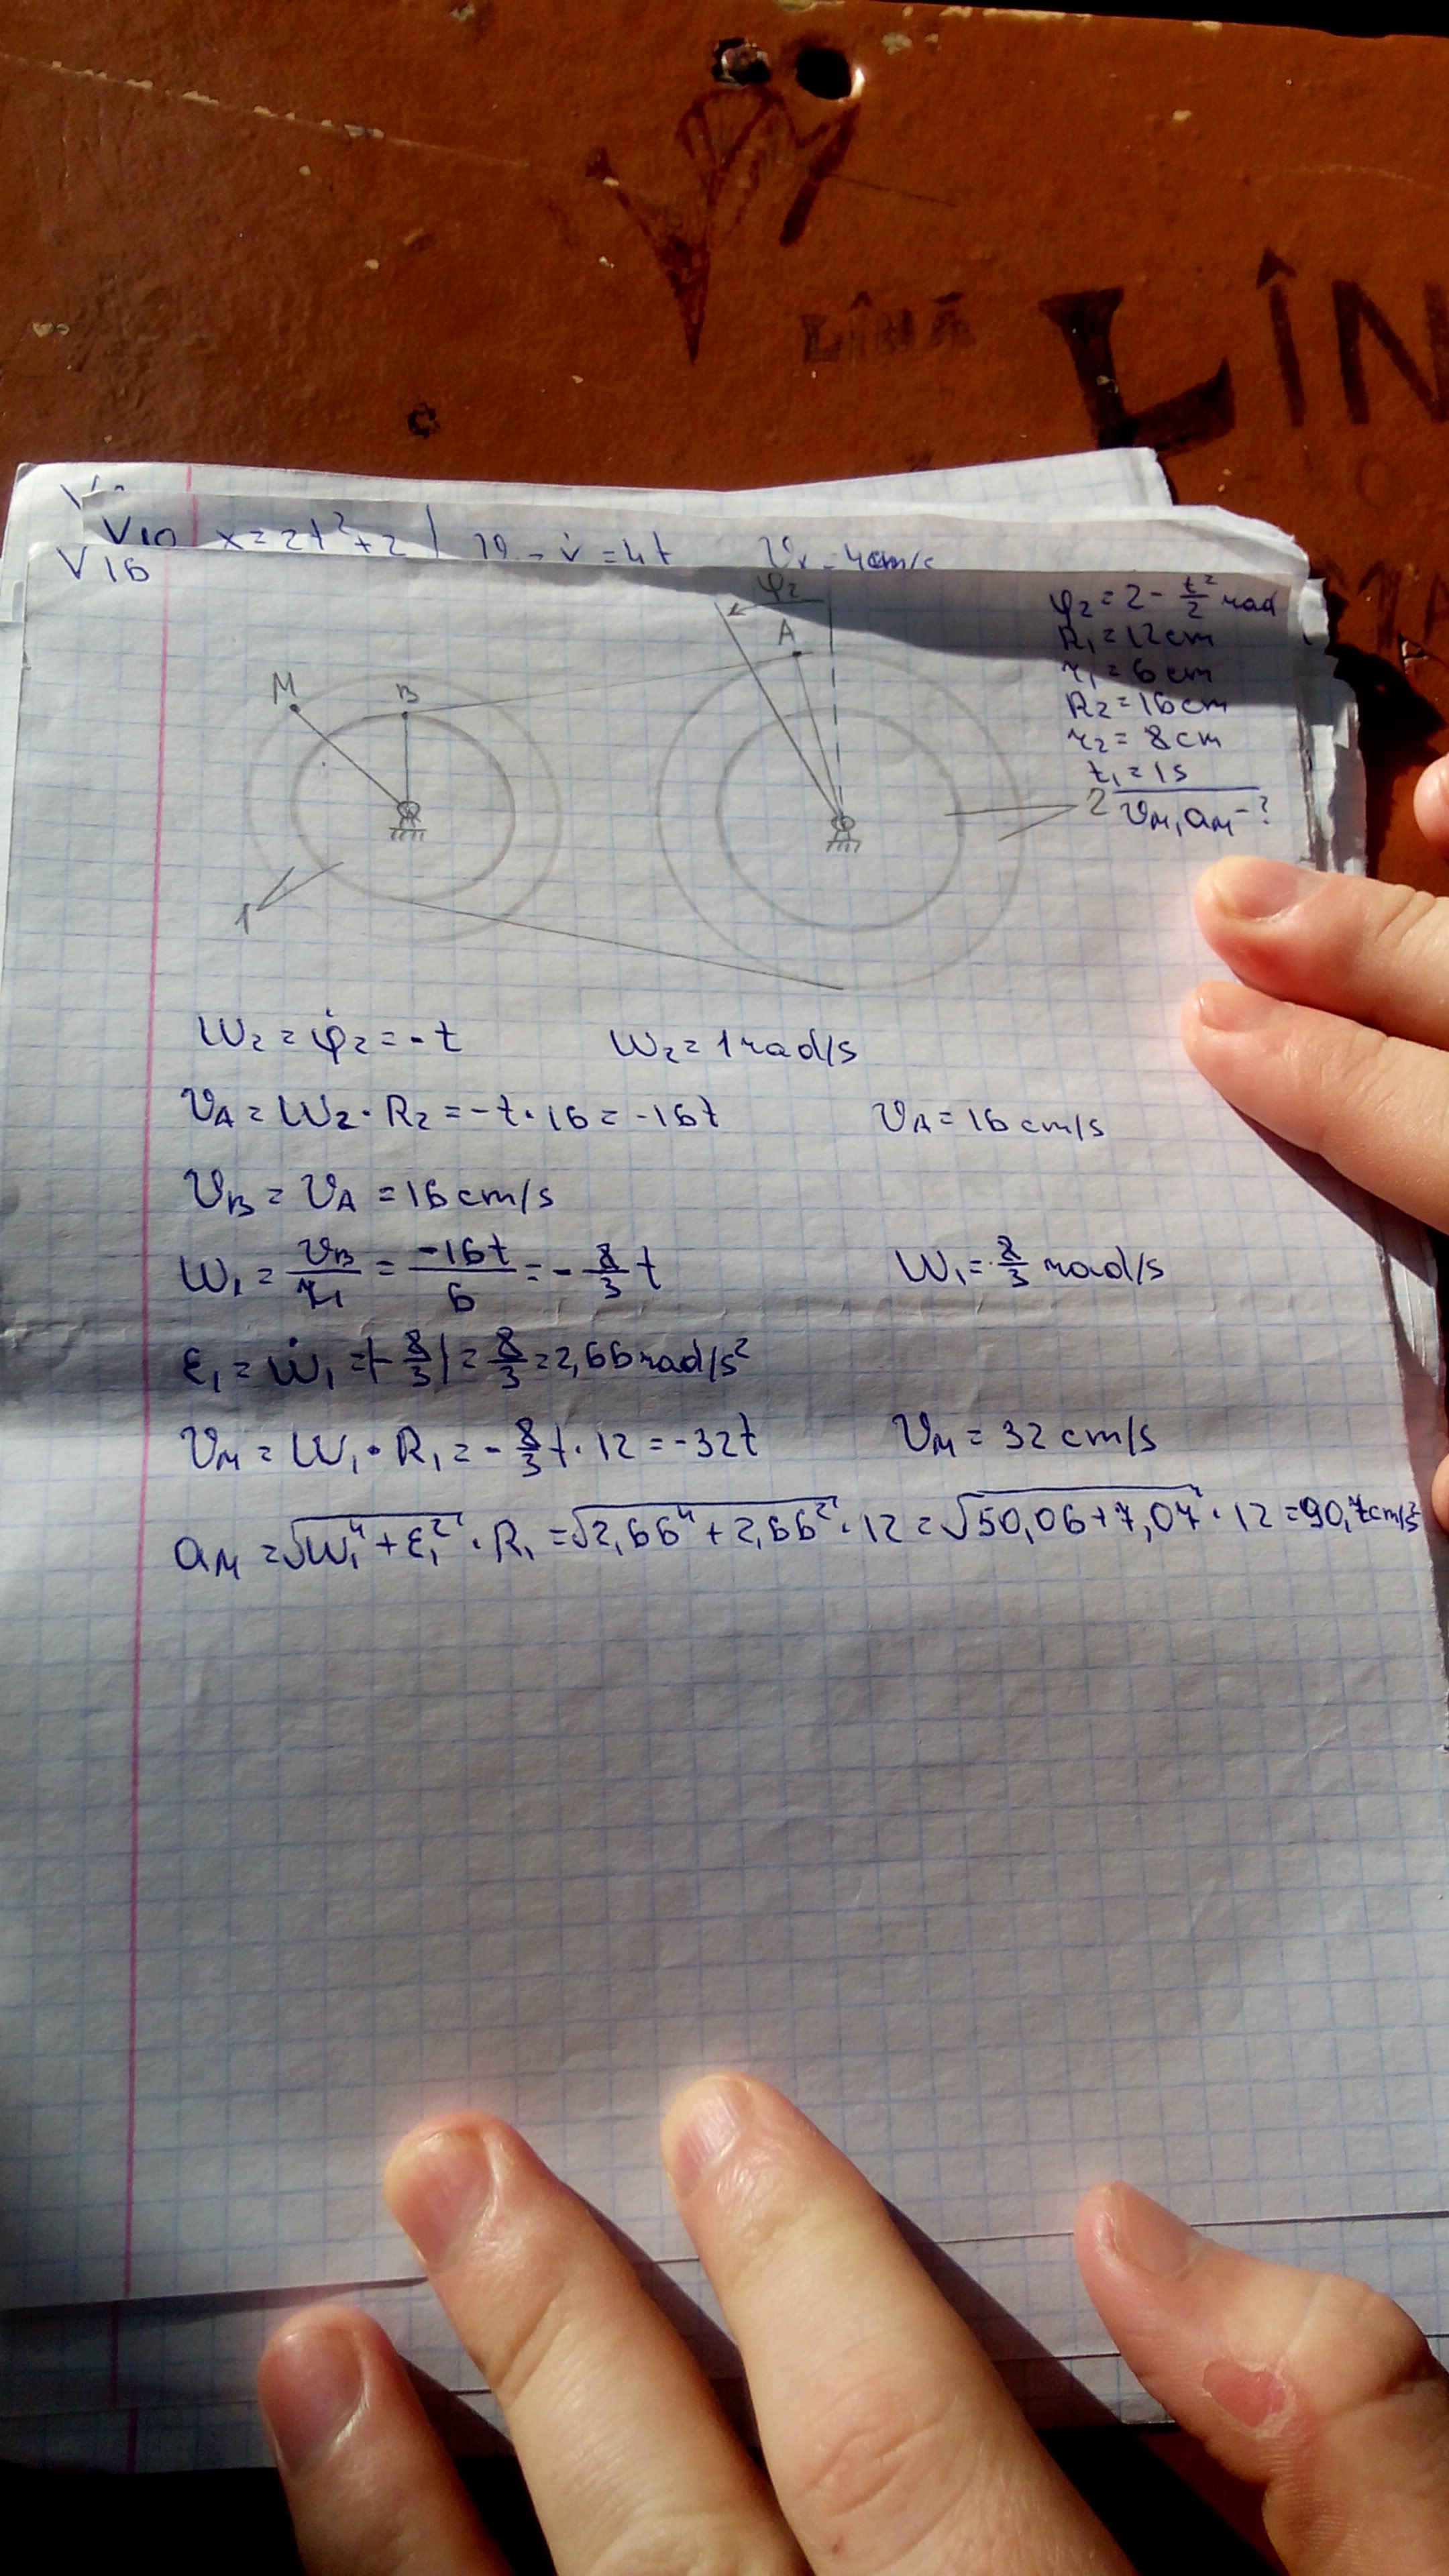 LÎNĂ
LÎN
V10 x=2t²+2
= 4t
4cm/s
V16
φ₂
A
M
B
1
2
φ₂ = 2 - t²/2 rad
R₁ = 12 cm
r₁ = 6 cm
R₂ = 16 cm
r₂ = 8 cm
t₁ = 1 s
v_M, a_M - ?
ω₂ = φ̇₂ = -t ω₂ = 1 rad/s
v_A = ω₂ · R₂ = -t · 16 = -16t v_A = 16 cm/s
v_B = v_A = 16 cm/s
ω₁ = v_B/r₁ = -16t/6 = -8/3 t ω₁ = 8/3 rad/s
ε₁ = ω̇₁ = |-8/3| = 8/3 = 2,66 rad/s²
v_M = ω₁ · R₁ = -8/3 t · 12 = -32t v_M = 32 cm/s
a_M = √(ω₁⁴ + ε₁²) · R₁ = √(2,66⁴ + 2,66²) · 12 = √(50,06 + 7,07) · 12 = 90,7 cm/s²